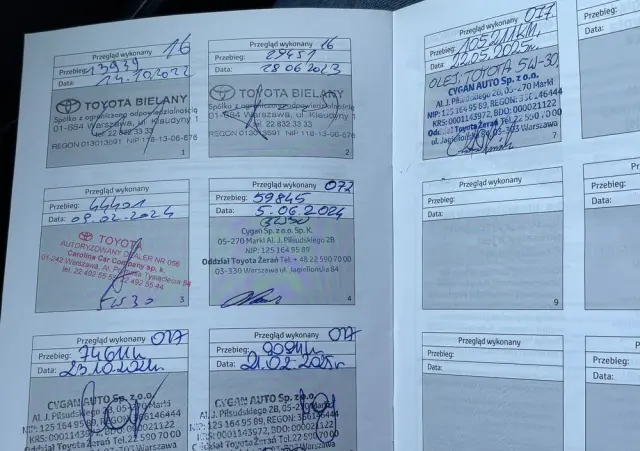 Przegląd wykonany 16
Przebieg: 13939
Data: 14.10.2022
TOYOTA BIELANY
Spółka z ograniczoną odpowiedzialnością
01-684 Warszawa, ul. Klaudyny 1
tel. 22 832 33 33
REGON 013013691 NIP 118-13-06-676
1
Przegląd wykonany 16
Przebieg: 29451
Data: 28 06 2023
TOYOTA BIELANY
Spółka z ograniczoną odpowiedzialnością
01-684 Warszawa, ul. Klaudyny 1
tel. 22 832 33 33
REGON 013013691 NIP 118-13-06-676
2
Przegląd wykonany
Przebieg: 44401
Data: 09.02.2024
TOYOTA
AUTORYZOWANY DEALER NR 096
Carolina Car Company sp. k.
01-242 Warszawa, Al. Prymasa Tysiąclecia
5W30
3
Przegląd wykonany 072
Przebieg: 59845
Data: 5.06.2024
Cygan Sp. z o.o. Sp. K.
05-270 Marki Al. J. Piłsudskiego 2B
NIP: 125 164 95 89
Oddział Toyota Żerań Tel. + 48 22 590 70 00
03-330 Warszawa ul. Jagiellońska 84
4
Przegląd wykonany 017
Przebieg:
Data: 23.10.2024r
CYGAN AUTO Sp. z o.o.
Al. J. Piłsudskiego 2B, 05-270 Marki
NIP: 125 164 95 89, REGON: 366146444
KRS: 0001143972, BDO: 000021122
Oddział Toyota Żerań Tel. 22 590 70 00
Przegląd wykonany 017
Przebieg:
Data: 21.02.2025r
CYGAN AUTO Sp. z o.o.
Al. J. Piłsudskiego 2B, 05-270 Marki
NIP: 125 164 95 89, REGON: 366146444
KRS: 0001143972, BDO: 000021122
Oddział Toyota Żerań Tel. 22 590 70 00
Przegląd wykonany 017
Przebieg: 105211KM,
Data: 22.05.2025r.
OLEJ TOYOTA 5W-30,
CYGAN AUTO Sp. z o.o.
Al. J. Piłsudskiego 2B, 05-270 Marki
NIP: 125 164 95 89, REGON: 366146444
KRS: 0001143972, BDO: 000021122
Oddział Toyota Żerań Tel. 22 590 70 00
ul. Jagiellońska 84 03-303 Warszawa
7
Przegląd wykonany
Przebieg:
Data:
9
Przegląd wykonany
Przebieg:
Data:
Data:
Przebieg:
Data:
Przebieg:
Data: